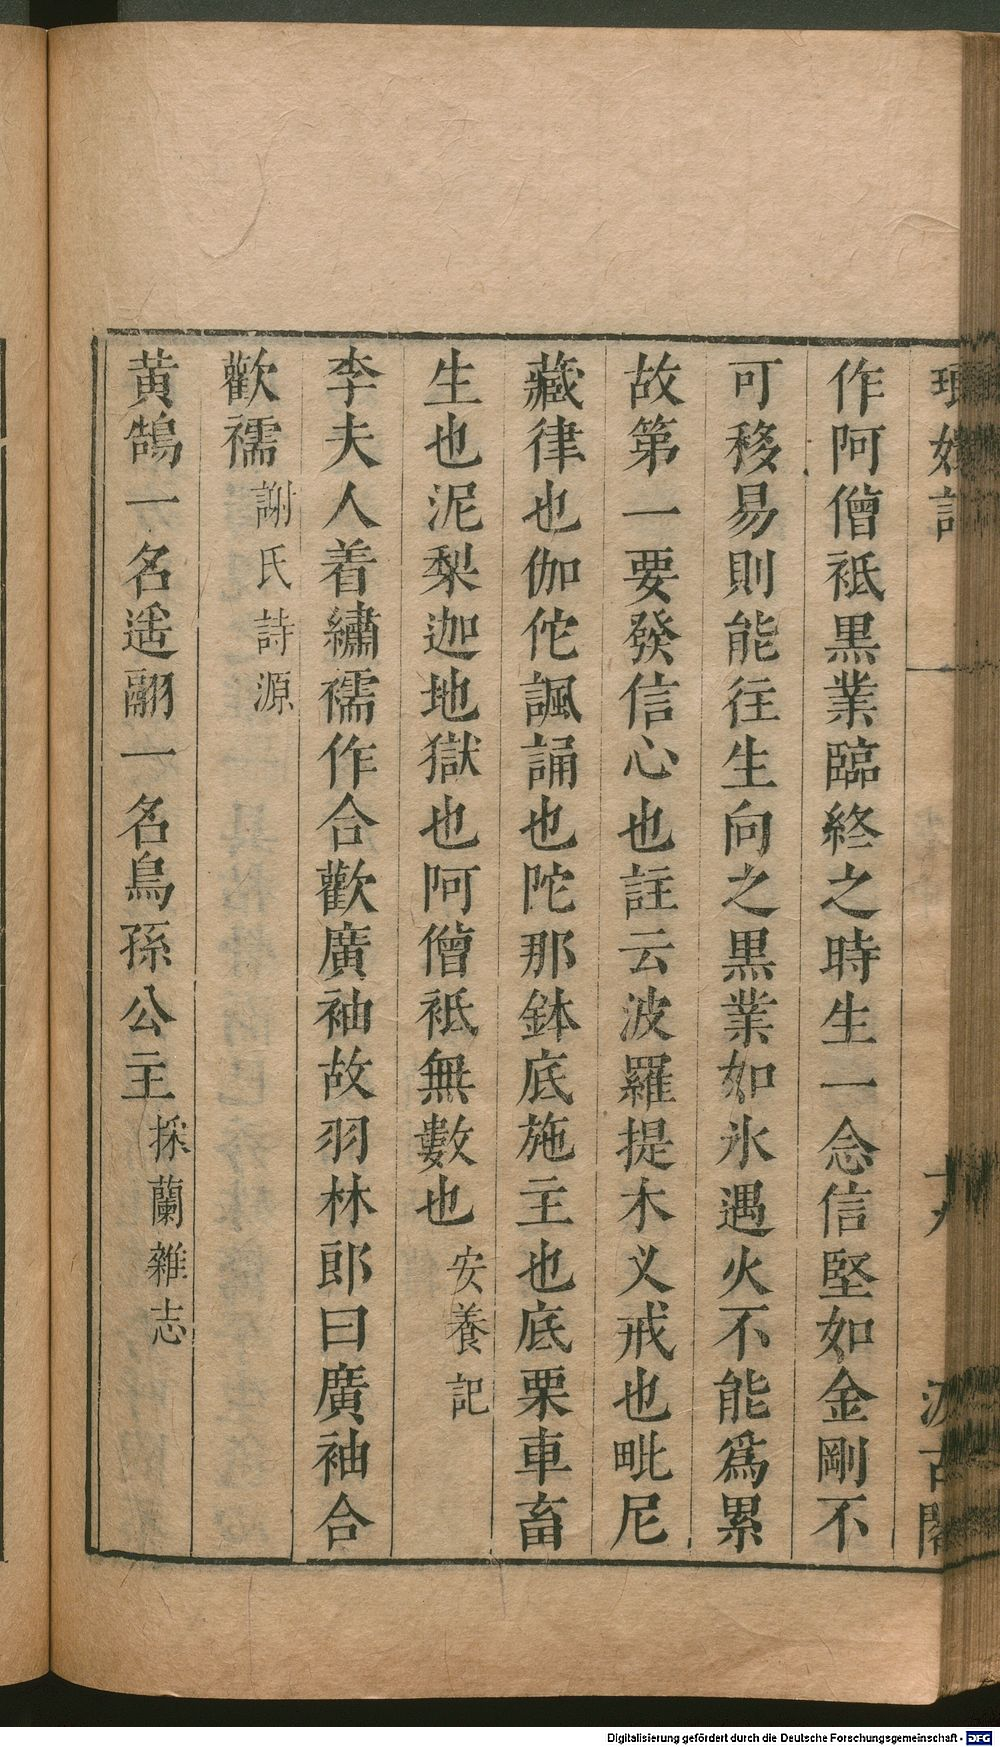 作阿僧祗黒業臨終之時生一念信堅如金剛不
可移易則能往生向之黒業如氷遇火不能爲累
故第一要發信心也註云波羅提木义戒也毗尼
藏律也伽佗諷誦也陀那鉢底施主也底栗車畜
生也泥梨迦地獄也阿僧祗無數也 安養記
李夫人着繡襦作合歡廣袖故羽林郎曰廣袖合
歡襦 謝氏詩源
黄鵠一名遥翮一名鳥孫公主 採蘭雜志
Digitalisierung gefördert durch die Deutsche Forschungsgemeinschaft - DFG